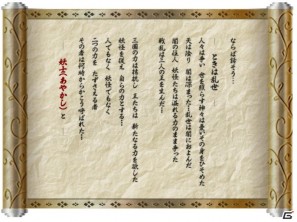 ならば語そう…
ときは乱世
人々は争い 世を照らす神々は憂いその身をひそめた
天は陰り 闇は深まった…乱世は闇におよんだ
闇の住人 妖怪たちは溢れる力のまま争った
戦乱は三人の王を生んだ…
三国の力は拮抗し 王たちは 新たなる力を欲した
妖怪を従え 自らの力とする…
人でもなく 妖怪でもなく
二つの力を たずさえる者
その者は何時からかこう呼ばれた…
妖玄(あやかし)と